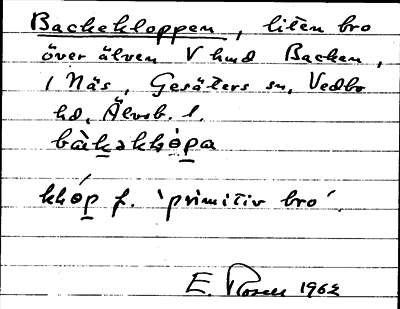 Backekloppen, liten bro
över älven V hmd Backen,
1 Näs, Gesäters sn, Vedbo
hd, Älvsb. l.
bàkəkhópa
khóp f. 'primitiv bro'.
E. Rosell 1962